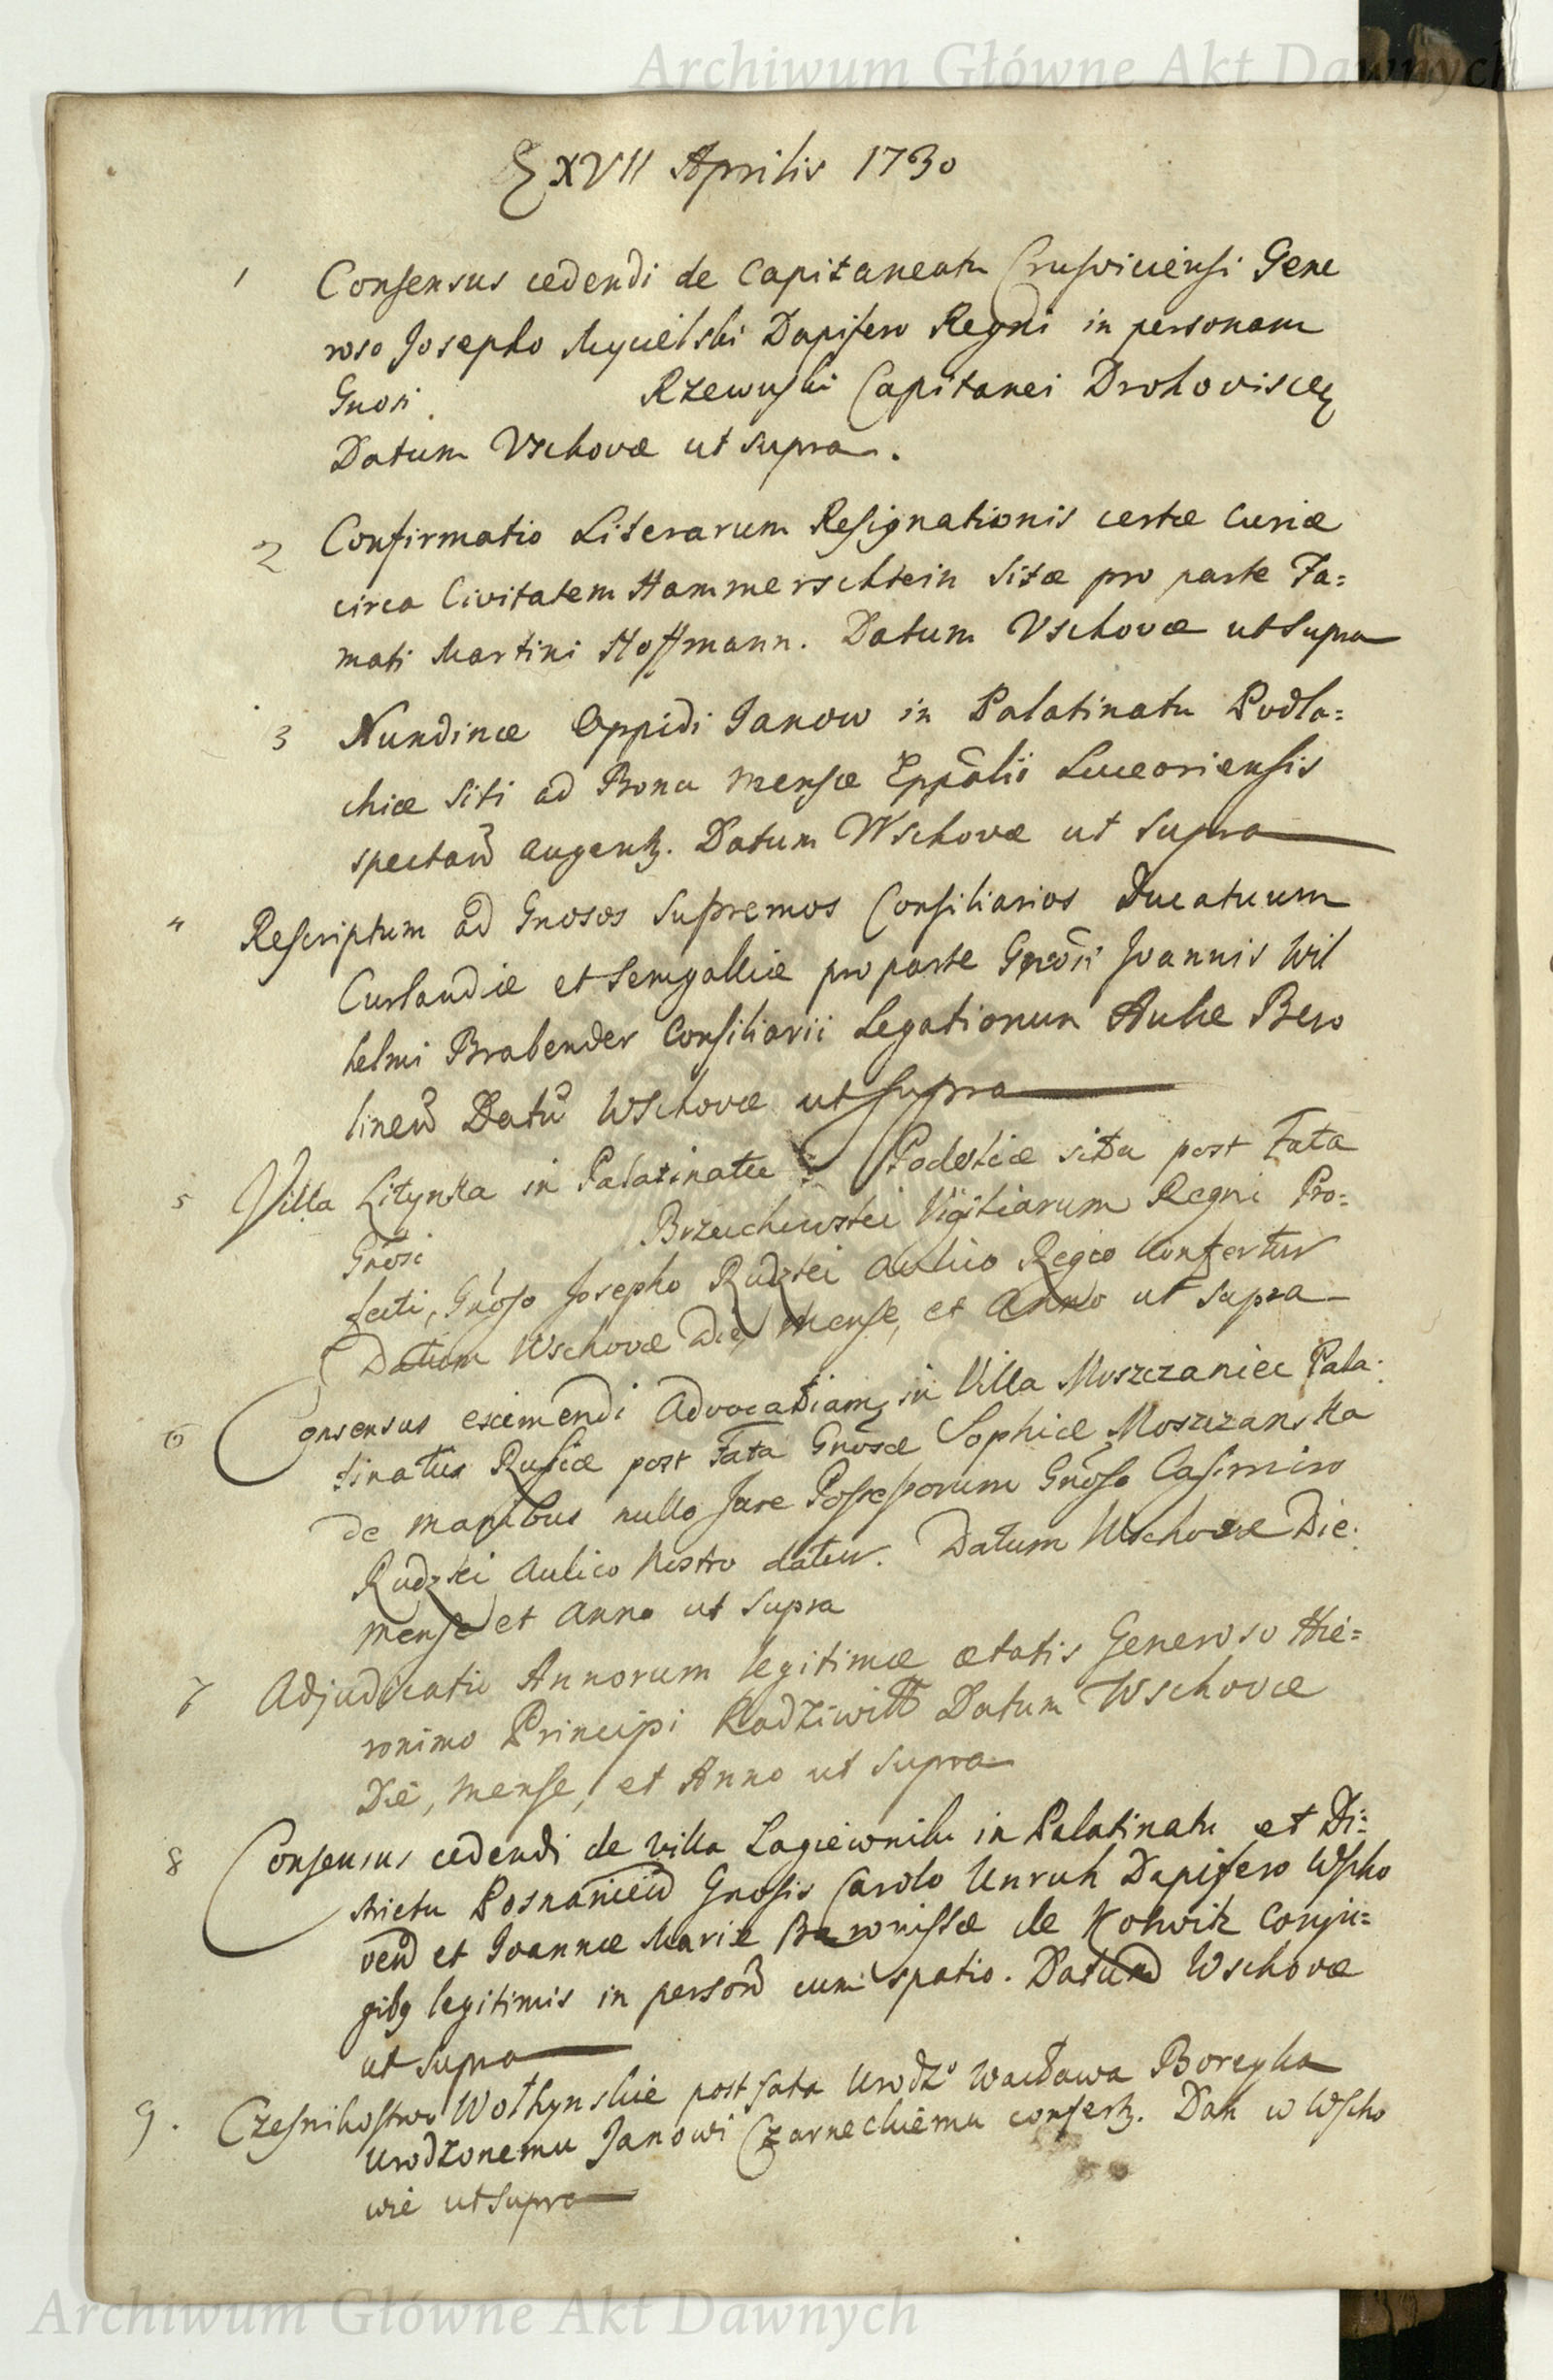 Archiwum Główne Akt Dawnych
XVII Aprilis 1730
1 Consensus cedendi de Capitaneatu Crusviciensi Gene
roso Josepho Mycielski Dapifero Regni in personam
Gnosi Rzewuski Capitanei Drohovisceṇ
Datum Vschovæ ut supra.
2 Confirmatio Literarum Resignationis certæ Curiæ
circa Civitatem Hammerschtein sitæ pro parte Fa=
mati Martini Hoffmann. Datum Vschovæ ut supra
3 Nundinæ Oppidi Janow in Palatinatu Podla=
chiæ siti ad Bona Mensæ Eppālis Luceoriensis
spectań augentꝫ. Datum Wschovæ ut supra
4 Rescriptum ad Gnosos Supremos Consiliarios Ducatuum
Curlandiæ et Semgalliæ pro parte Gnōsi Joannis Wil
helmi Brabender Consiliarii Legationum Aulæ Bero
lineń Datū Wschovæ ut supra
5 Villa Litynka in Palatinatu Podoliæ sita post Fata
Gnosi Brzuchowski Vigiliarum Regni Pro=
fecti, Gnoso Josepho Rudzki Aulico Regio confertur
Datum Wschovæ die, Mense, et Anno ut supra
6 Consensus eximendi Advocatiam in Villa Moszczaniec Pala=
tinatus Russiæ post Fata Gnosæ Sophiæ Moszczanska
de manibus nullo Jure Possessorum Gnoso Casimiro
Rudzki Aulico Nostro datur. Datum Wschovæ Die:
Mense et Anno ut supra
7 Adjudicatio Annorum legitimæ ætatis Generoso Hie=
ronimo Principi Radziwiłł Datum Wschovæ
Die, Mense, et Anno ut supra
8 Consensus cedendi de Villa Lagiewniki in Palatinatu et Di=
strictu Posnanień Gnosis Carolo Unruh Dapifero Wscho
veń et Joannæ Mariæ Baronissæ de Kotwitz Conju=
gibꝫ legitimis in persoń cum spatio. Datum Wschovæ
ut supra
9. Czesnikostwo Wołhynskie post fata Urodzo Wacława Boreyka
Urodzonemu Janowi Czarneckiemu confertꝫ. Dan w Wscho
wie ut supra
Archiwum Główne Akt Dawnych